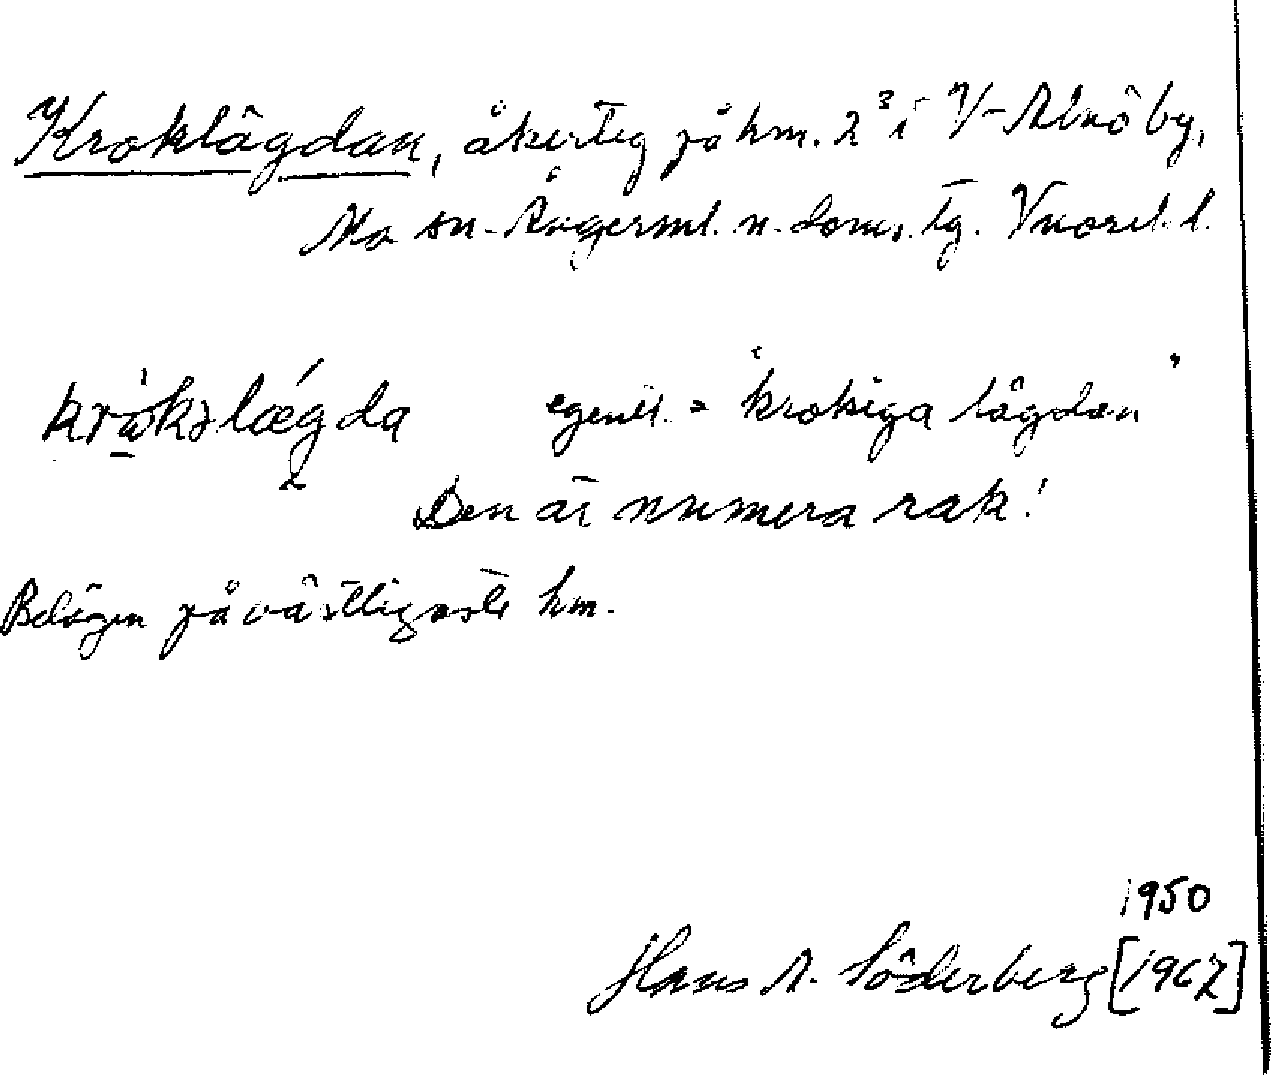 Kroklägdan, åkerteg på hm. 2³ i V-Alnö by,
Mo sn. Ångerml. n. doms. tg.
egentl. = "krokiga lägdan"
Den är numera rak!
Belägen på västligaste hm.
1950
Hans A. Söderberg [1962]